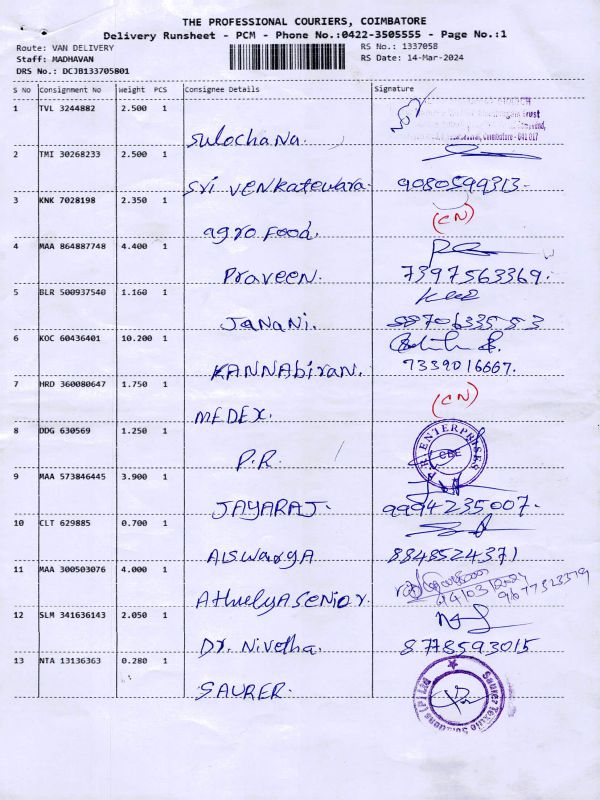 THE PROFESSIONAL COURIERS, COIMBATORE
Delivery Runsheet - PCM - Phone No.:0422-3505555 - Page No.:1
Route: VAN DELIVERY RS No.: 1337058
Staff: MADHAVAN RS Date: 14-Mar-2024
DRS No.: DCJB133705801
S No Consignment No Weight PCS Consignee Details Signature
1 TVL 3244882 2.500 1
Trust
Coimbatore - 641 017
Sulochana.
2 TMI 30268233 2.500 1
Sri Venkateswara. 9080599313.
3 KNK 7028198 2.350 1 (CN)
agro Food.
4 MAA 864887748 4.400 1
Praveen. 7397563369.
5 BLR 500937540 1.160 1
Janani.
6 KOC 60436401 10.200 1
KANNAbiran. 7339016667.
7 HRD 360080647 1.750 1 (CN)
MEDEX.
8 DDG 630569 1.250 1 P.R ENTERPRISES CBE
P.R.
9 MAA 573846445 3.900 1
JAYARAJ. 9994235007.
10 CLT 629885 0.700 1
Alswarya 8848524371
11 MAA 300503076 4.000 1
14/03/2024
Athulya Senior.
12 SLM 341636143 2.050 1
Dr. Nivetha. 8778593015
13 NTA 13136363 0.280 1 Saurer Textile Solutions (P) Ltd
SAURER.